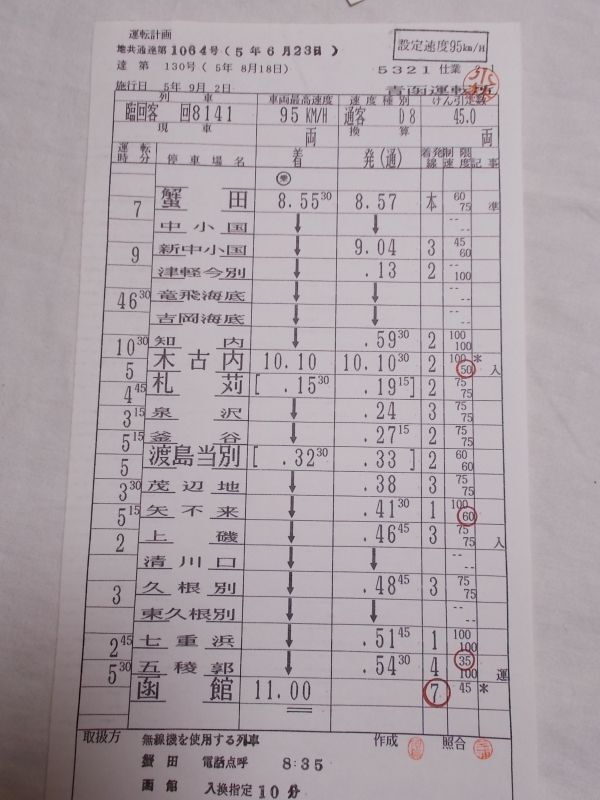 運転計画
地共通達第1064号(5年6月23日)
達第 130号(5年8月18日)
設定速度95km/H
5321仕業
施行日 5年9月2日
青函運転所
列車 車両最高速度 速度種別 けん引定数
臨回客 回8141 95KM/H 通客 D8 45.0
現車 両 換算 両
運転時分 停車場名 着 発(通) 着発線 制限速度 記事
蟹田 8.55 30 8.57 本 60 75 準
7
中小国 ↓ ↓ -- --
新中小国 ↓ 9.04 3 45 60
9
津軽今別 ↓ .13 2 -- 100
竜飛海底 ↓ ↓ -- --
46 30
吉岡海底 ↓ ↓ -- --
知内 ↓ .59 30 2 100 100
10 30
木古内 10.10 10.10 30 2 100 50 * 入
5
札苅 [ .15 30 .19 15 ] 2 75 75
4 45
泉沢 ↓ .24 3 75 75
3 15
釜谷 ↓ .27 15 2 75 75
5 15
渡島当別 [ .32 30 .33 ] 2 60 60
5
茂辺地 ↓ .38 3 75 75
3 30
矢不来 ↓ .41 30 1 100 60
5 15
上磯 ↓ .46 45 3 75 75 入
2
清川口 ↓ ↓ -- --
久根別 ↓ .48 45 3 75 75
3
東久根別 ↓ ↓ -- --
七重浜 ↓ .51 45 1 100 100
2 45
五稜郭 ↓ .54 30 4 35 100 運
5 30
函館 11.00 7 45 *
取扱方 無線機を使用する列車 作成 照合
蟹田 電話点呼 8:35
函館 入換指定10分